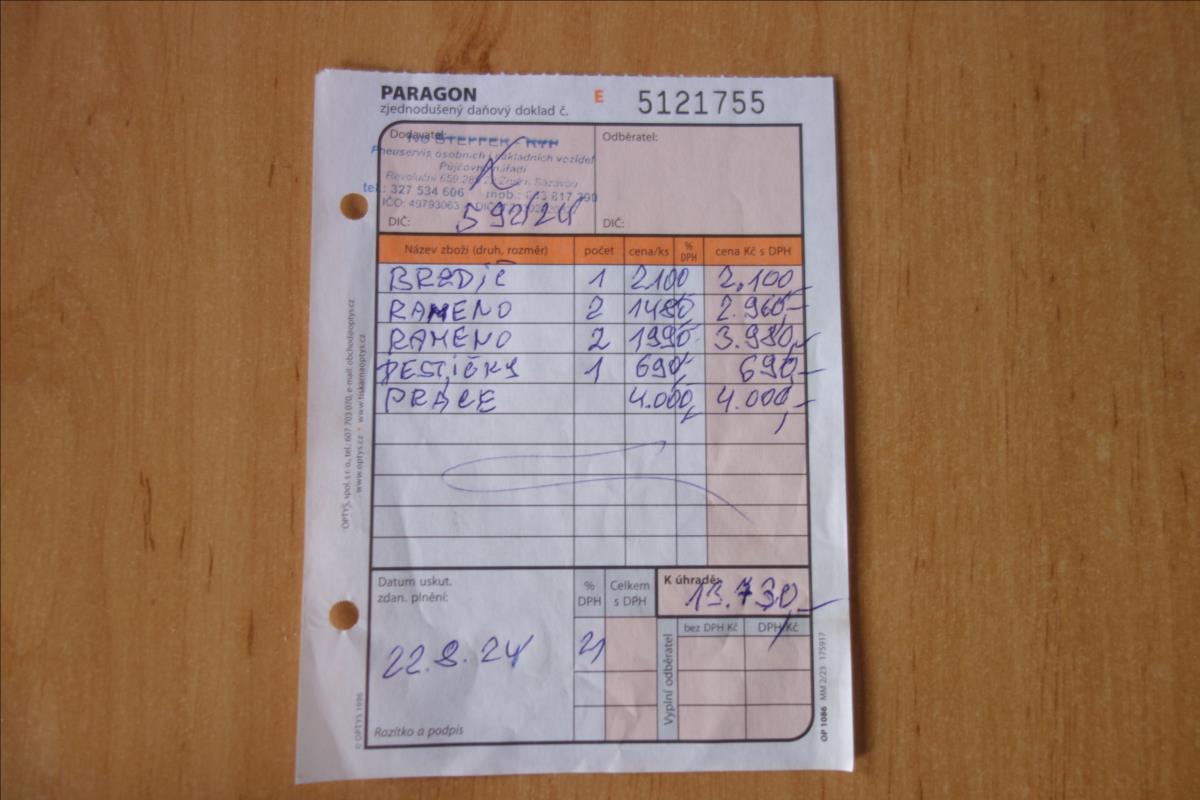 PARAGON E 5121755
zjednodušený daňový doklad č.
Dodavatel: Odběratel:
Ivo STEFFEK - KYH
Pneuservis osobních i nákladních vozidel
Půjčovna nářadí
Revoluční 659, 285 Zruč n. Sázavou
tel.: 327 534 606 mob.: 603 817 390
IČO: 49793063 DIČ:
592/24
DIČ: DIČ:
Název zboží (druh, rozměr) počet cena/ks % DPH cena Kč s DPH
BRZDIČ 1 2100 2.100,-
RAMENO 2 1480,- 2.960,-
RAMENO 2 1990,- 3.980,-
PESTIČKY 1 690,- 690,-
PRÁCE 4.000,- 4.000,-
Datum uskut.
zdan. plnění:
22.8.24
% DPH Celkem s DPH
21
K úhradě:
13.730,-
bez DPH Kč DPH Kč
Vyplní odběratel
Razítko a podpis
OPTYS, spol. s r. o., tel.: 607 703 070, e-mail: obchod@optys.cz
www.optys.cz • www.tiskarnaoptys.cz
© OPTYS 1996
OP 1086 MM 2/23 175917